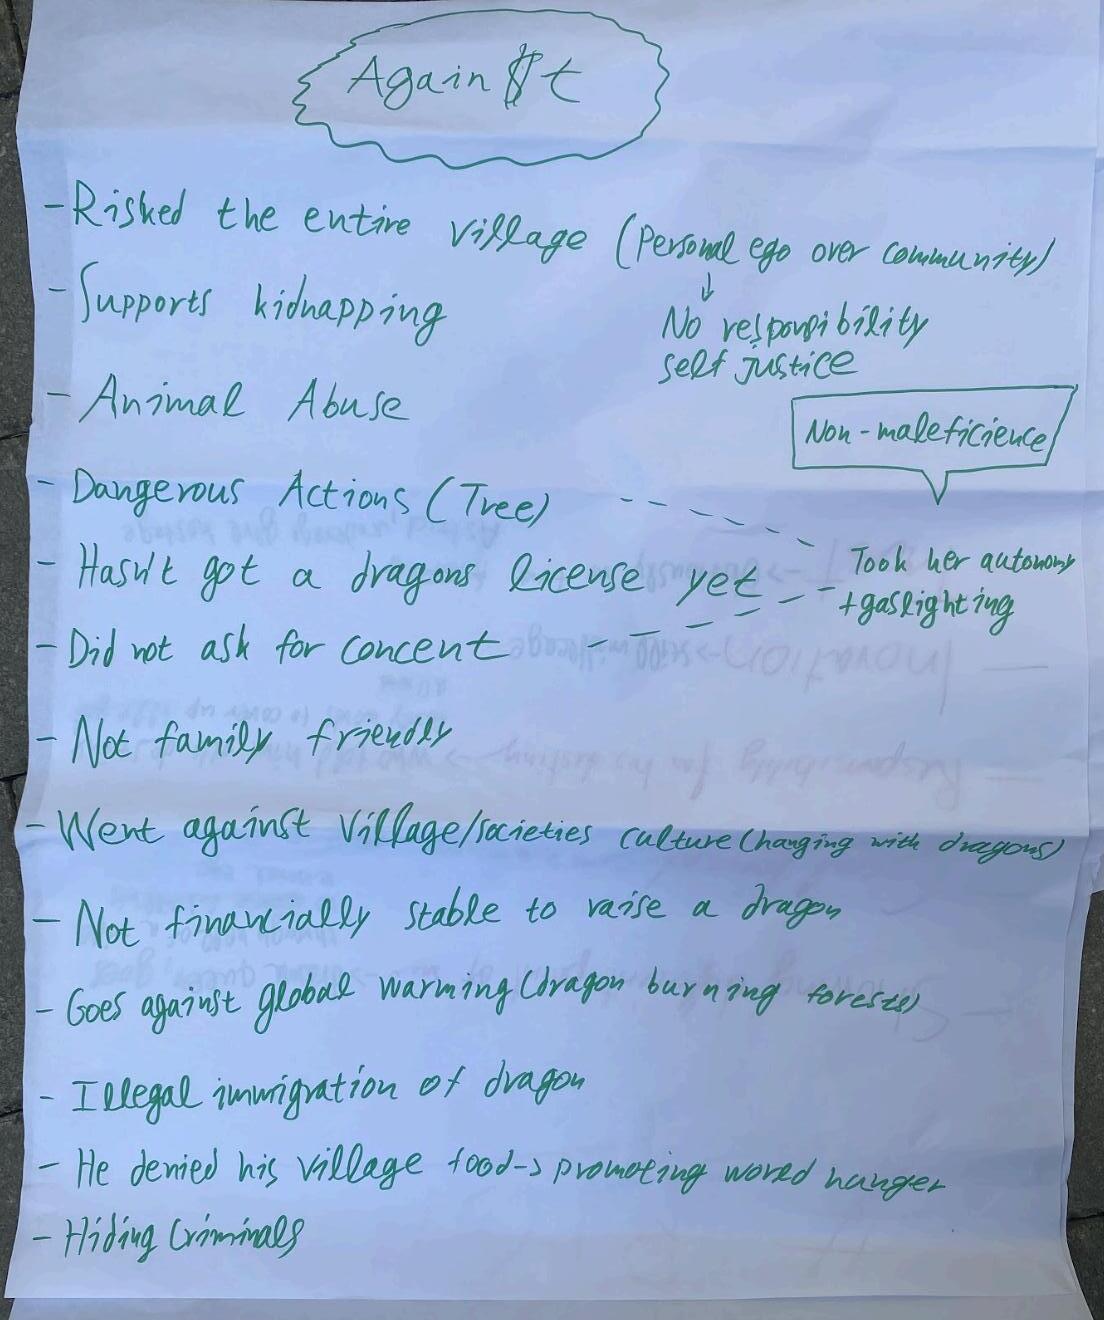 Again$t
- Risked the entire village (Personal ego over community)
↓
No responsibility
self justice
- Supports kidnapping
- Animal Abuse
Non-maleficience
- Dangerous Actions (Tree)
- Hasn't got a dragons license yet
Took her autonomy
+gaslighting
- Did not ask for concent
- Not family friendly
- Went against Village/societies culture (hanging with dragons)
- Not financially stable to raise a dragon
- Goes against global warming (dragon burning forests)
- Illegal immigration of dragon
- He denied his village food -> promoting world hunger
- Hiding Criminals